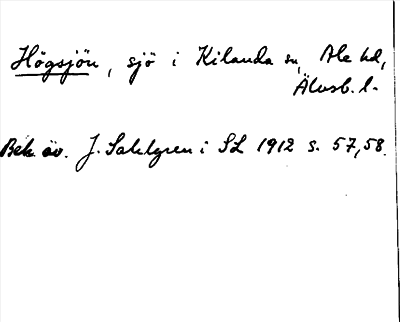 Högsjön, sjö i Kilanda sn, Ale hd,
Älvsb. l.
Beh. av. J. Sahlgren i SL 1912 s. 57,58.